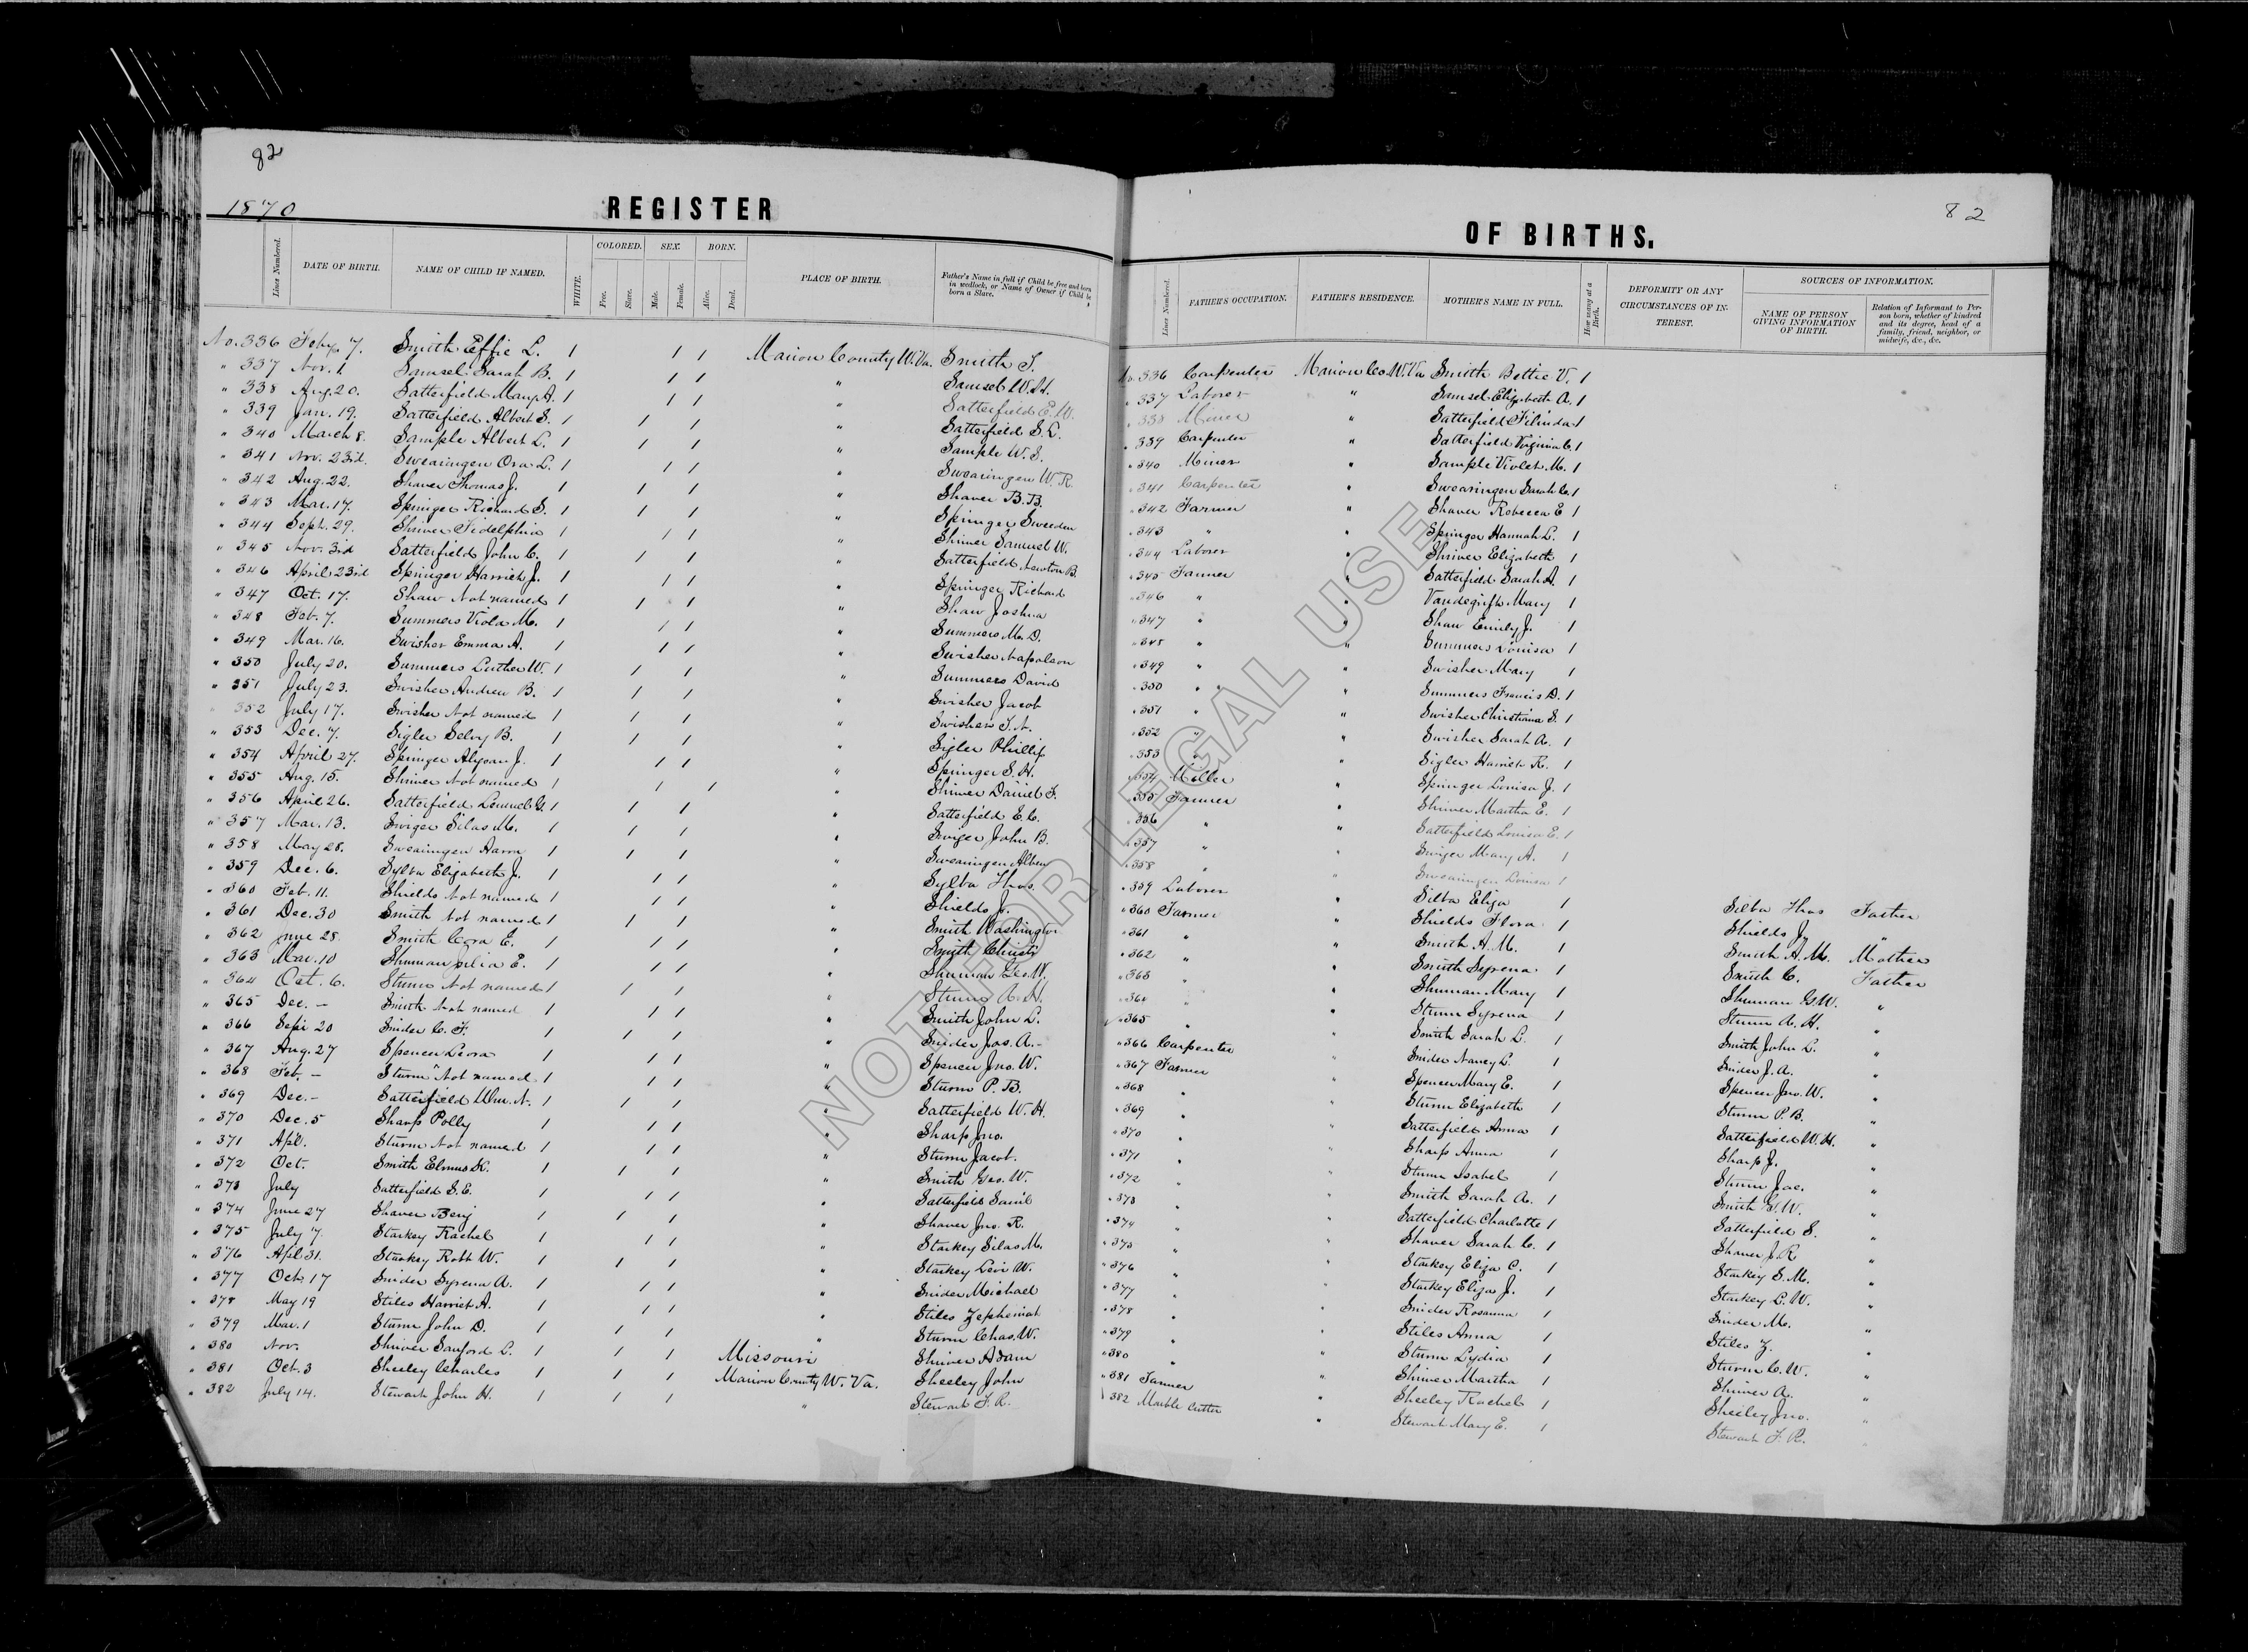 82
1870 REGISTER
Lines Numbered. DATE OF BIRTH. NAME OF CHILD IF NAMED. WHITE. COLORED. Free. Slave. SEX. Male. Female. BORN. Alive. Dead. PLACE OF BIRTH. Father's Name in full if Child be free and born in wedlock, or Name of Owner if Child be born a Slave.
No. 336 Feby 7. Smith Effie L. 1 1 1 Marion County W. Va. Smith T.
" 337 Nov. 1 Samsel Sarah B. 1 1 1 " Samsel W. H.
" 338 Aug. 20. Satterfield Mary A. 1 1 1 " Satterfield E. W.
" 339 Jan. 19. Satterfield Albert S. 1 1 1 " Satterfield S. L.
" 340 March 8. Sample Albert L. 1 1 1 " Sample W. S.
" 341 Nov. 23rd. Swearingen Ora L. 1 1 1 " Swearingen W. R.
" 342 Aug. 22. Shaver Thomas J. 1 1 1 " Shaver B. B.
" 343 Mar. 17. Springer Richard S. 1 1 1 " Springer Sweeden
" 344 Sept. 29. Shriver Fidelphia 1 1 1 " Shriver Samuel W.
" 345 Nov. 3rd Satterfield John C. 1 1 1 " Satterfield Newton B.
" 346 April 23rd Springer Harriet J. 1 1 1 " Springer Richard
" 347 Oct. 17. Shaw Not named 1 1 1 " Shaw Joshua
" 348 Feb. 7. Summers Viola M. 1 1 1 " Summers M. D.
" 349 Mar. 16. Swisher Emma A. 1 1 1 " Swisher Napoleon
" 350 July 20. Summers Luther W. 1 1 1 " Summers David
" 351 July 23. Swisher Andrew B. 1 1 1 " Swisher Jacob
" 352 July 17. Swisher Not named 1 1 1 " Swisher T. N.
" 353 Dec. 7. Sigler Selvy B. 1 1 1 " Sigler Phillip
" 354 April 27. Springer J. 1 1 1 " Springer S. H.
" 355 Aug. 15. Shriver Not named 1 1 1 " Shriver Daniel F.
" 356 April 26. Satterfield Lemuel G. 1 1 1 " Satterfield E. C.
" 357 Mar. 13. Swiger Silas M. 1 1 1 " Swiger John B.
" 358 May 28. Swearingen Aaron 1 1 1 " Swearingen Alben
" 359 Dec. 6. Sylba Elizabeth J. 1 1 1 " Sylba Thos.
" 360 Feb. 11. Shields Not named 1 1 1 " Shields J.
" 361 Dec. 30 Smith Not named 1 1 1 " Smith Washington
" 362 June 28. Smith Cora E. 1 1 1 " Smith Christ
" 363 Mar. 10 Shuman Julia E. 1 1 1 " Shuman Geo. W.
" 364 Oct. 6. Sturm Not named 1 1 1 " Sturm A. H.
" 365 Dec. – Smith Not named 1 1 1 " Smith John L.
" 366 Sept 20 Snider C. F. 1 1 1 " Snider Jas. A.
" 367 Aug. 27 Spencer Leora 1 1 1 " Spencer Jno. W.
" 368 Feb. – Sturm Not named 1 1 1 " Sturm P. B.
" 369 Dec. – Satterfield Wm. N. 1 1 1 " Satterfield W. H.
" 370 Dec. 5 Sharp Polly 1 1 1 " Sharp Jno.
" 371 Apl. Sturm Not named 1 1 1 " Sturm Jacob.
" 372 Oct. Smith Elmus K. 1 1 1 " Smith Geo. W.
" 373 July Satterfield S. E. 1 1 1 " Satterfield Saml
" 374 June 27 Shaver Benj 1 1 1 " Shaver Jno. R.
" 375 July 7 Starkey Rachel 1 1 1 " Starkey Silas M.
" 376 Apl. 31. Starkey Robt W. 1 1 1 " Starkey Levi W.
" 377 Oct. 17 Snider Syrena A. 1 1 1 " Snider Michael
" 378 May 19 Stiles Harriet A. 1 1 1 " Stiles Zepheniah
" 379 Mar. 1 Sturm John D. 1 1 1 " Sturm Chas. W.
" 380 Nov. Shriver Sanford L. 1 1 1 Missouri Shriver Adam
" 381 Oct. 3 Sheeley Charles 1 1 1 Marion County W. Va. Sheeley John
" 382 July 14. Stewart John H. 1 1 1 " Stewart F. R.
82
OF BIRTHS.
Lines Numbered. FATHER'S OCCUPATION. FATHER'S RESIDENCE. MOTHER'S NAME IN FULL. How many at a Birth. DEFORMITY OR ANY CIRCUMSTANCES OF INTEREST. SOURCES OF INFORMATION. NAME OF PERSON GIVING INFORMATION OF BIRTH. Relation of Informant to Person born, whether of kindred and its degree, head of a family, friend, neighbor, or midwife, &c., &c.
No. 336 Carpenter Marion Co. W. Va Smith Bettie V. 1
" 337 Laborer " Samsel Elizabeth A. 1
" 338 Miner " Satterfield Filinda 1
" 339 Carpenter " Satterfield Virginia C. 1
" 340 Miner " Sample Violet M. 1
" 341 Carpenter " Swearingen Sarah C. 1
" 342 Farmer " Shaver Rebecca E 1
" 343 " " Springer Hannah L. 1
" 344 Laborer " Shriver Elizabeth 1
" 345 Farmer " Satterfield Sarah A. 1
" 346 " " Vandegrift Mary 1
" 347 " " Shaw Emily J. 1
" 348 " " Summers Louisa 1
" 349 " " Swisher Mary 1
" 350 " " Summers Francis D. 1
" 351 " " Swisher Christiana S. 1
" 352 " " Swisher Sarah A. 1
" 353 " " Sigler Harriet R. 1
" 354 Miller " Springer Louisa J. 1
" 355 Farmer " Shriver Martha E. 1
" 356 " " Satterfield Louisa E. 1
" 357 " " Swiger Mary A. 1
" 358 " " Swearingen Louisa 1
" 359 Laborer " Silba Eliza 1 Silba Thos Father
" 360 Farmer " Shields Flora 1 Shields J. "
" 361 " " Smith A. M. 1 Smith A. M. Mother
" 362 " " Smith Syrena 1 Smith C. Father
" 363 " " Shuman Mary 1 Shuman G. W. "
" 364 " " Sturm Syrena 1 Sturm A. H. "
" 365 " " Smith Sarah L. 1 Smith John L. "
" 366 Carpenter " Snider Nancy L. 1 Snider J. A. "
" 367 Farmer " Spencer Mary E. 1 Spencer Jno. W. "
" 368 " " Sturm Elizabeth 1 Sturm P. B. "
" 369 " " Satterfield Anna 1 Satterfield W. H. "
" 370 " " Sharp Anna 1 Sharp J. "
" 371 " " Sturm Isabel 1 Sturm Jac. "
" 372 " " Smith Sarah A. 1 Smith G. W. "
" 373 " " Satterfield Charlotte 1 Satterfield S. "
" 374 " " Shaver Sarah C. 1 Shaver J. R "
" 375 " " Starkey Eliza C. 1 Starkey S. M. "
" 376 " " Starkey Eliza J. 1 Starkey L. W. "
" 377 " " Snider Rosanna 1 Snider M. "
" 378 " " Stiles Anna 1 Stiles Z. "
" 379 " " Sturm Lydia 1 Sturm C. W. "
" 380 " " Shriver Martha 1 Shriver A. "
" 381 Farmer " Sheeley Rachel 1 Sheeley Jno. "
" 382 Marble Cutter " Stewart Mary E. 1 Stewart F. R. "
NOT FOR LEGAL USE